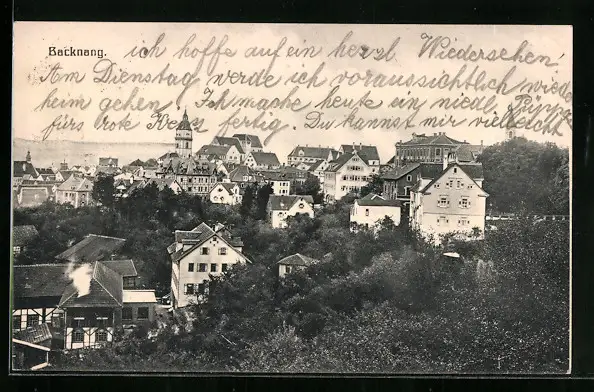 Backnang.
ich hoffe auf ein herzl Wiedersehen!
Am Dienstag werde ich voraussichtlich wieder
heim gehen. Ich mache heute ein niedl. Püpp
fürs rote Kreuz fertig. Du kannst mir vielleicht